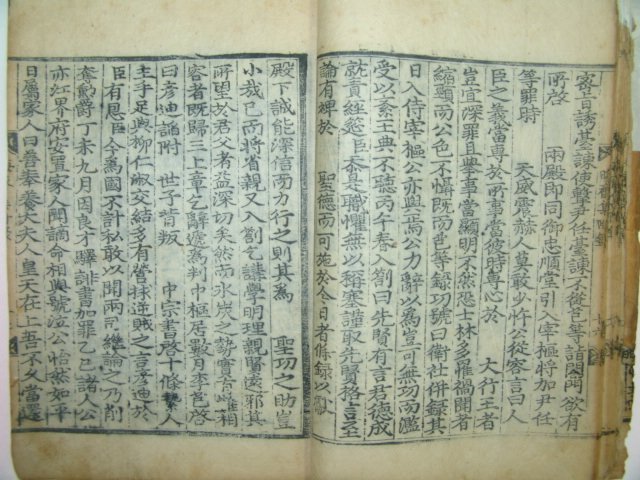 密旨誘臺諫使擊尹任臺諫不從芑等詣閤門欲有
所啓　兩殿即同御忠順堂引入宰樞將加尹任
等罪時　天威震赫人莫敢少忤公從容言曰人
臣之義當專於所事當彼時專心於　大行王者
豈宜深罪且擧事當顯明不然恐士林多罹禍聞者
縮頸而公色不
日入侍宰樞公亦與焉公力辭以爲豈可無功而濫
受以紊王典不聽丙午春入劄曰先賢有言君德成
就責經筵臣忝是職懼無以稱塞謹取先賢格言至
論有裨於　聖德而可施於今日者條錄以獻
殿下誠能深信而力行之則其爲　聖功之助豈
小哉已而將省親又入劄乞講學明理親賢遠邪其
所望於君父者益深切矣然而氷炭之勢實有難相
容者旣歸三上章乞辭遞爲判中樞居數月李芑啓
曰彦迪諂附　世子背叛　中宗書啓十條繫人
主手足與柳仁淑交結多有營救逆賊之言彦迪於
臣有恩臣今爲國不計私敢以聞兩司繼論之乃削
奪勳爵丁未九月因良才驛誹書加罪乙巳諸人公
亦江界府安置家人聞謫命相與號泣公怡然如平
日屬家人曰善奉養大夫人皇天在上吾不久當還